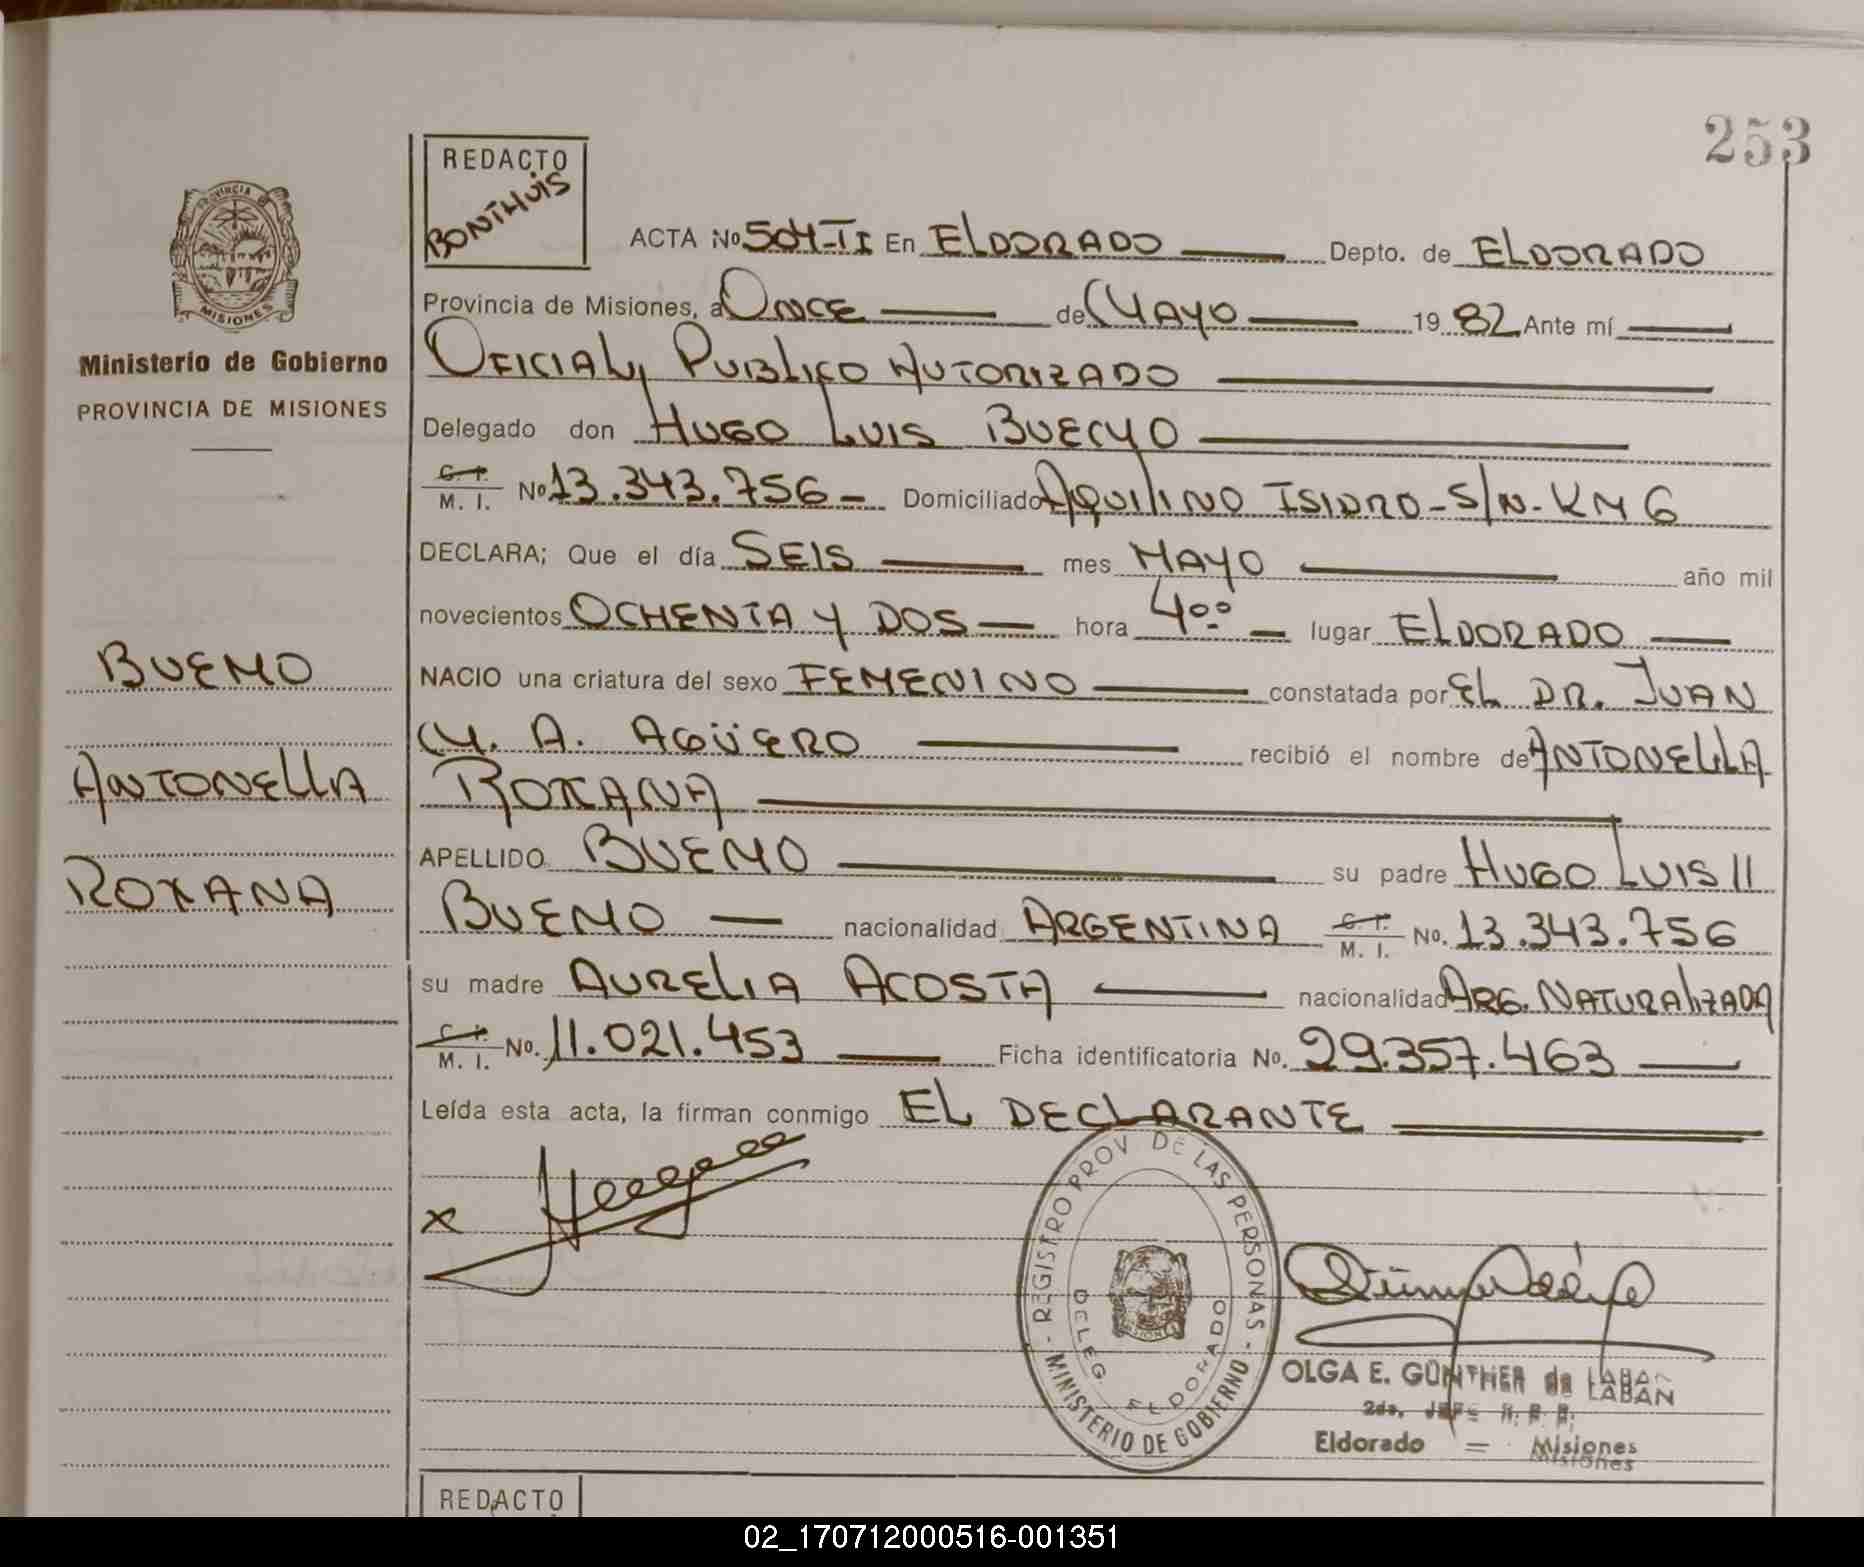 253
REDACTO
BONTHUIS
PROVINCIA
MISIONES
Ministerio de Gobierno
PROVINCIA DE MISIONES
ACTA No 504-II En ELDORADO Depto. de ELDORADO
Provincia de Misiones, a ONCE de MAYO 1982 Ante mí
OFICIAL PUBLICO AUTORIZADO
Delegado don HUGO LUIS BUEMO
C. I. M. I. No 13.343.756 - Domiciliado AQUILINO ISIDRO - S/N - KM 6
DECLARA; Que el día SEIS mes MAYO año mil
novecientos OCHENTA Y DOS - hora 4.00 - lugar ELDORADO
BUEMO
NACIO una criatura del sexo FEMENINO constatada por EL DR. JUAN
M. A. AGÜERO recibió el nombre de ANTONELLA
ANTONELLA
ROXANA
APELLIDO BUEMO su padre HUGO LUIS //
ROXANA
BUEMO - nacionalidad ARGENTINA C. I. M. I. No. 13.343.756
su madre AURELIA ACOSTA nacionalidad ARG. NATURALIZADA
C. I. M. I. No. 11.021.453 Ficha identificatoria No. 29.357.463
Leída esta acta, la firman conmigo EL DECLARANTE
x
- REGISTRO PROV DE LAS PERSONAS -
MINISTERIO DE GOBIERNO
DELEG. ELDORADO
OLGA E. GÜNTHER de LABAN
2da. JEFE R. P. P.
Eldorado = Misiones
REDACTO
02_170712000516-001351